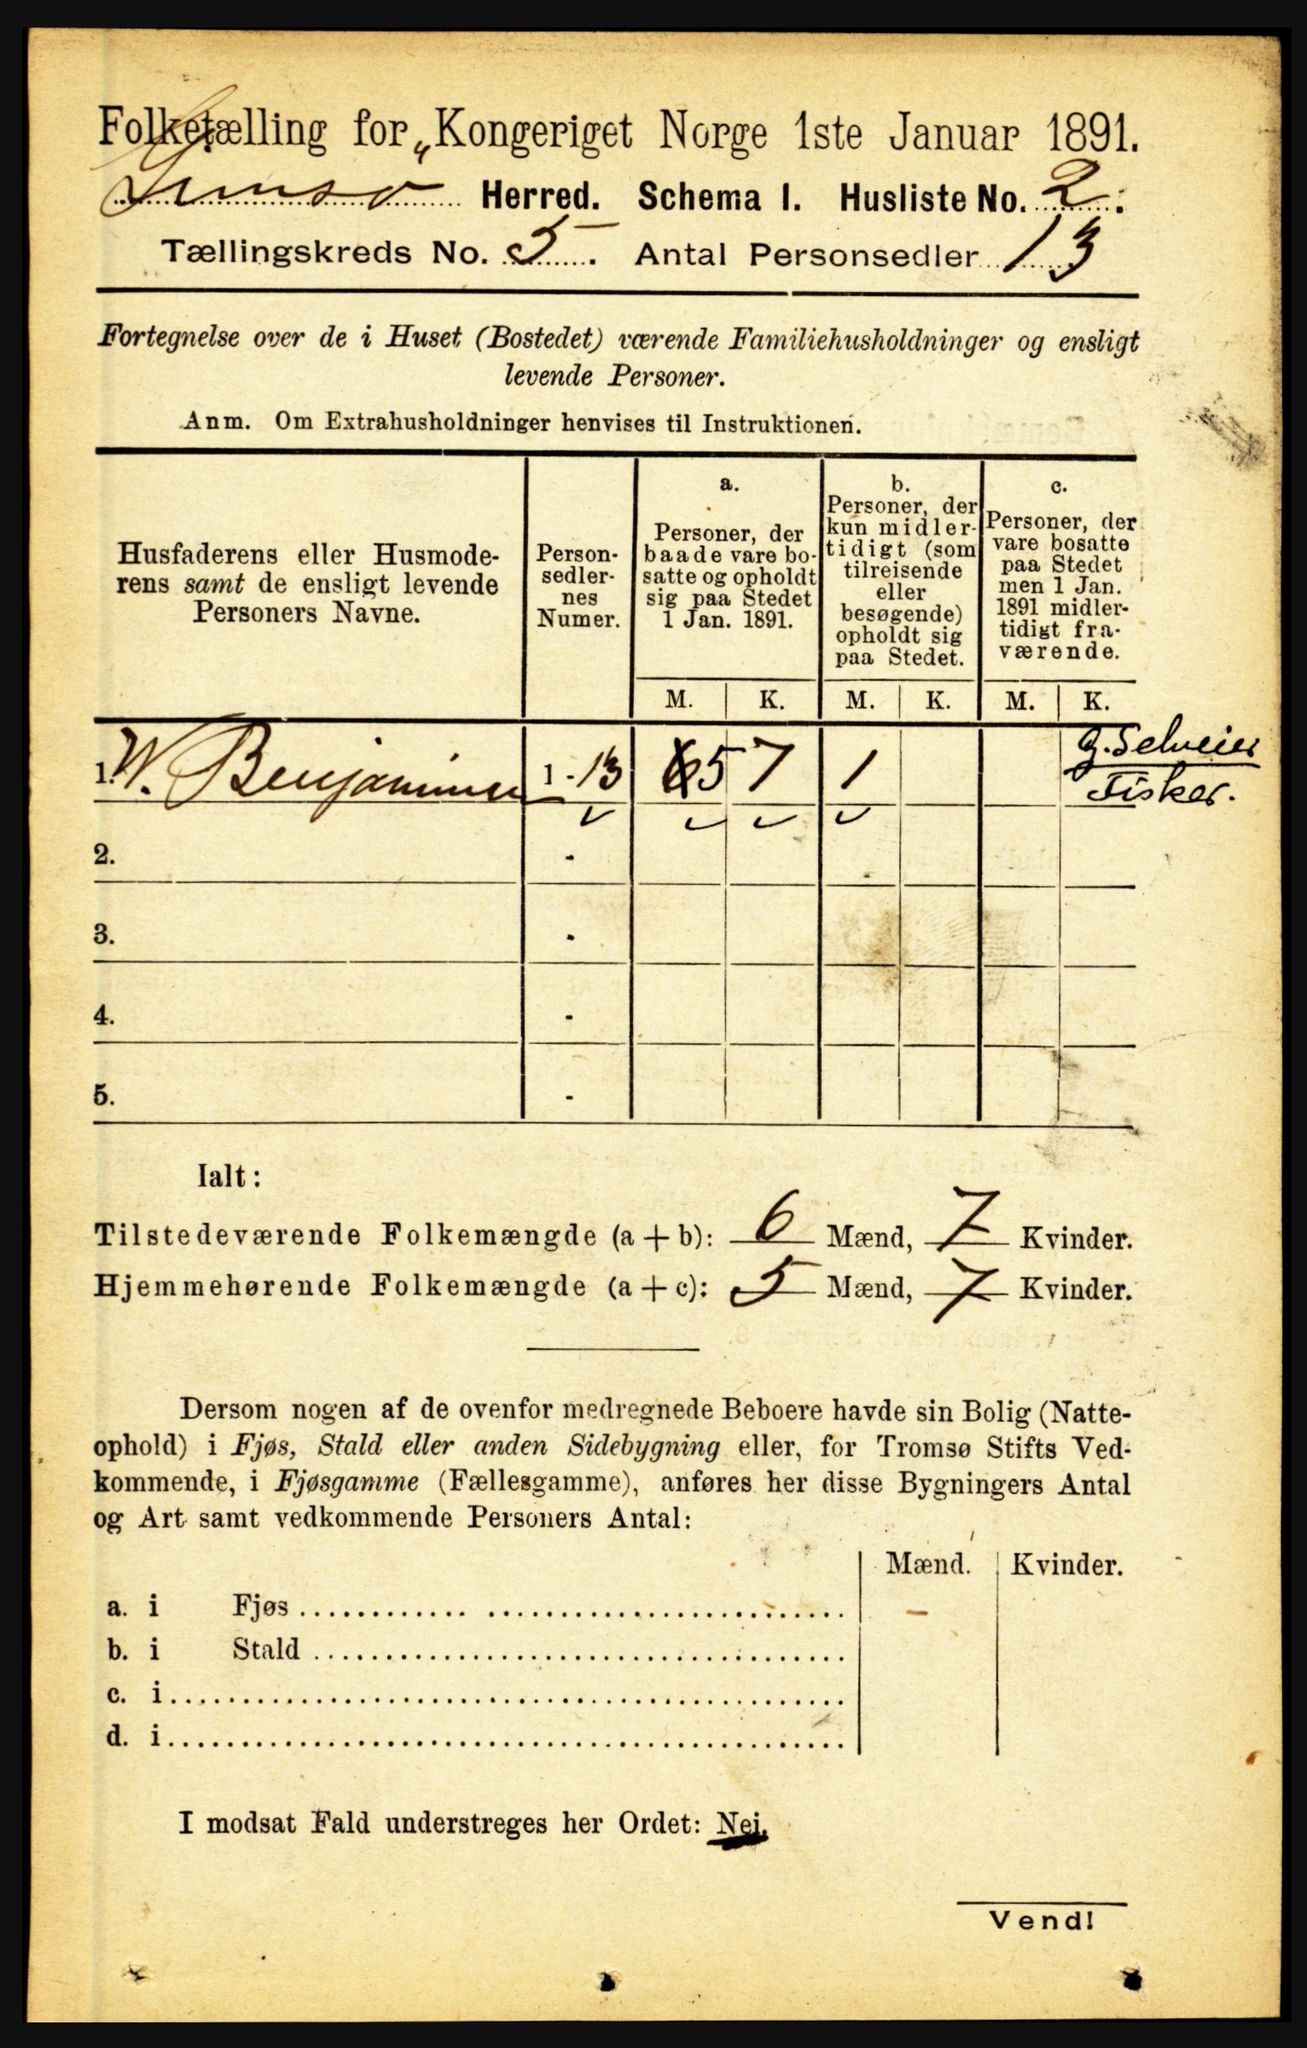 Folketælling for Kongeriget Norge 1ste Januar 1891.
Gimsø Herred. Schema I. Husliste No. 2.
Tællingskreds No. 5. Antal Personsedler 13
Fortegnelse over de i Huset (Bostedet) værende Familiehusholdninger og ensligt
levende Personer.
Anm. Om Extrahusholdninger henvises til Instruktionen.
Husfaderens eller Husmode-
rens samt de ensligt levende
Personers Navne.
Person-
sedler-
nes
Numer.
a.
Personer, der
baade vare bo-
satte og opholdt
sig paa Stedet
1 Jan. 1891.
b.
Personer, der
kun midler-
tidigt (som
tilreisende
eller
besøgende)
opholdt sig
paa Stedet.
c.
Personer, der
vare bosatte
paa Stedet
men 1 Jan.
1891 midler-
tidigt fra-
værende.
M. K. M. K. M. K.
1. W. Benjaminsen 1 - 13 6 5 7 1 G. Selveier
Fisker.
2. -
3. -
4. -
5. -
Ialt:
Tilstedeværende Folkemængde (a + b): 6 Mænd, 7 Kvinder.
Hjemmehørende Folkemængde (a + c): 5 Mænd, 7 Kvinder.
Dersom nogen af de ovenfor medregnede Beboere havde sin Bolig (Natte-
ophold) i Fjøs, Stald eller anden Sidebygning eller, for Tromsø Stifts Ved-
kommende, i Fjøsgamme (Fællesgamme), anføres her disse Bygningers Antal
og Art samt vedkommende Personers Antal:
Mænd. Kvinder.
a. i Fjøs
b. i Stald
c. i
d. i
I modsat Fald understreges her Ordet: Nei.
Vend!